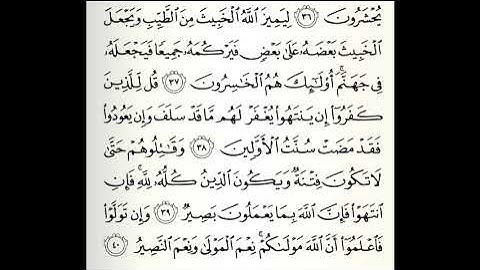 يُحْشَرُونَ ٣٦ لِيَمِيزَ اللَّهُ الْخَبِيثَ مِنَ الطَّيِّبِ وَيَجْعَلَ
الْخَبِيثَ بَعْضَهُ عَلَىٰ بَعْضٍ فَيَرْكُمَهُ جَمِيعًا فَيَجْعَلَهُ
فِي جَهَنَّمَ أُولَٰئِكَ هُمُ الْخَاسِرُونَ ٣٧ قُل لِّلَّذِينَ
كَفَرُوا إِن يَنتَهُوا يُغْفَرْ لَهُم مَّا قَدْ سَلَفَ وَإِن يَعُودُوا
فَقَدْ مَضَتْ سُنَّتُ الْأَوَّلِينَ ٣٨ وَقَاتِلُوهُمْ حَتَّىٰ
لَا تَكُونَ فِتْنَةٌ وَيَكُونَ الدِّينُ كُلُّهُ لِلَّهِ فَإِنِ
انتَهَوْا فَإِنَّ اللَّهَ بِمَا يَعْمَلُونَ بَصِيرٌ ٣٩ وَإِن تَوَلَّوْا
فَاعْلَمُوا أَنَّ اللَّهَ مَوْلَاكُمْ نِعْمَ الْمَوْلَىٰ وَنِعْمَ النَّصِيرُ ٤٠